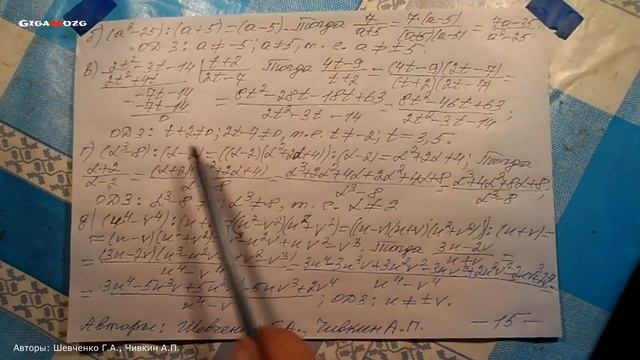 GIGAMOZG
б) (a²-25):(a+5)=(a-5). Тогда 7/(a+5) = 7(a-5)/((a+5)(a-5)) = (7a-35)/(a²-25).
ОДЗ: a≠-5; a≠5, т. е. a≠±5.
в) 2t²-3t-14 | t+2
2t²+4t | 2t-7
-7t-14
-7t-14
0
Тогда (4t-9)/(t+2) = (4t-9)(2t-7)/((t+2)(2t-7)) =
= (8t²-28t-18t+63)/(2t²-3t-14) = (8t²-46t+63)/(2t²-3t-14);
ОДЗ: t+2≠0; 2t-7≠0, т.е. t≠-2; t=3,5.
г) (α³-8):(α-2)=((α-2)(α²+2α+4)):(α-2)=α²+2α+4; Тогда
(α+2)/(α-2) = (α+2)(α²+2α+4)/(α³-8) = (α³+2α²+4α+2α²+4α+8)/(α³-8) = (α³+4α²+8α+8)/(α³-8);
ОДЗ: α³-8≠0; α³≠8, т. е. α≠2
д) (u⁴-v⁴):(u+v)=(u²-v²)(u²+v²)=((u-v)(u+v)(u²+v²)):(u+v)=
=(u-v)(u²+v²) u²v+uv²-v³. Тогда (3u-2v)/(u+v)
= (3u-2v)(u³-u²v+uv²-v³)/(u⁴-v⁴) = 3u⁴-3u³v+3u²v²-3uv³ u⁴-v⁴
= (3u⁴-5u³v+5u²v²-5uv³+2v⁴)/(u⁴-v⁴); ОДЗ: u≠±v.
Авторы: Шевченко Г.А., Чивкин А.П. -15-
Авторы: Шевченко Г.А., Чивкин А.П.